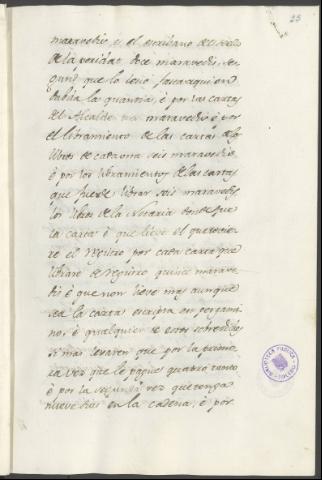 25
maravedis, e el escribano del sello
de la poridat doce maravedis, se-
gund que lo levó fasta aqui en
la quantia, è por las cartas
del Alcalde tres maravedis è por
el libramiento de las cartas de los
libros de cada una seis maravedis
è por los libramientos de las cartas
que fuere librar seis maravedis
los libros de la Notaria donde fue
la carta è que lieve el que tovie-
re el registro por cada carta que
librare de registro quince marave-
dis è que non lieve mas aunque
sea la carta escripta en pergami-
no: è qualquier de estos sobredichos
si mas levaren que por la prime-
ra vez que le pague quatro tanto
è por la segunda vez que tenga
nueve dias en la cadena, è por
BIBLIOTECA PUBLICA